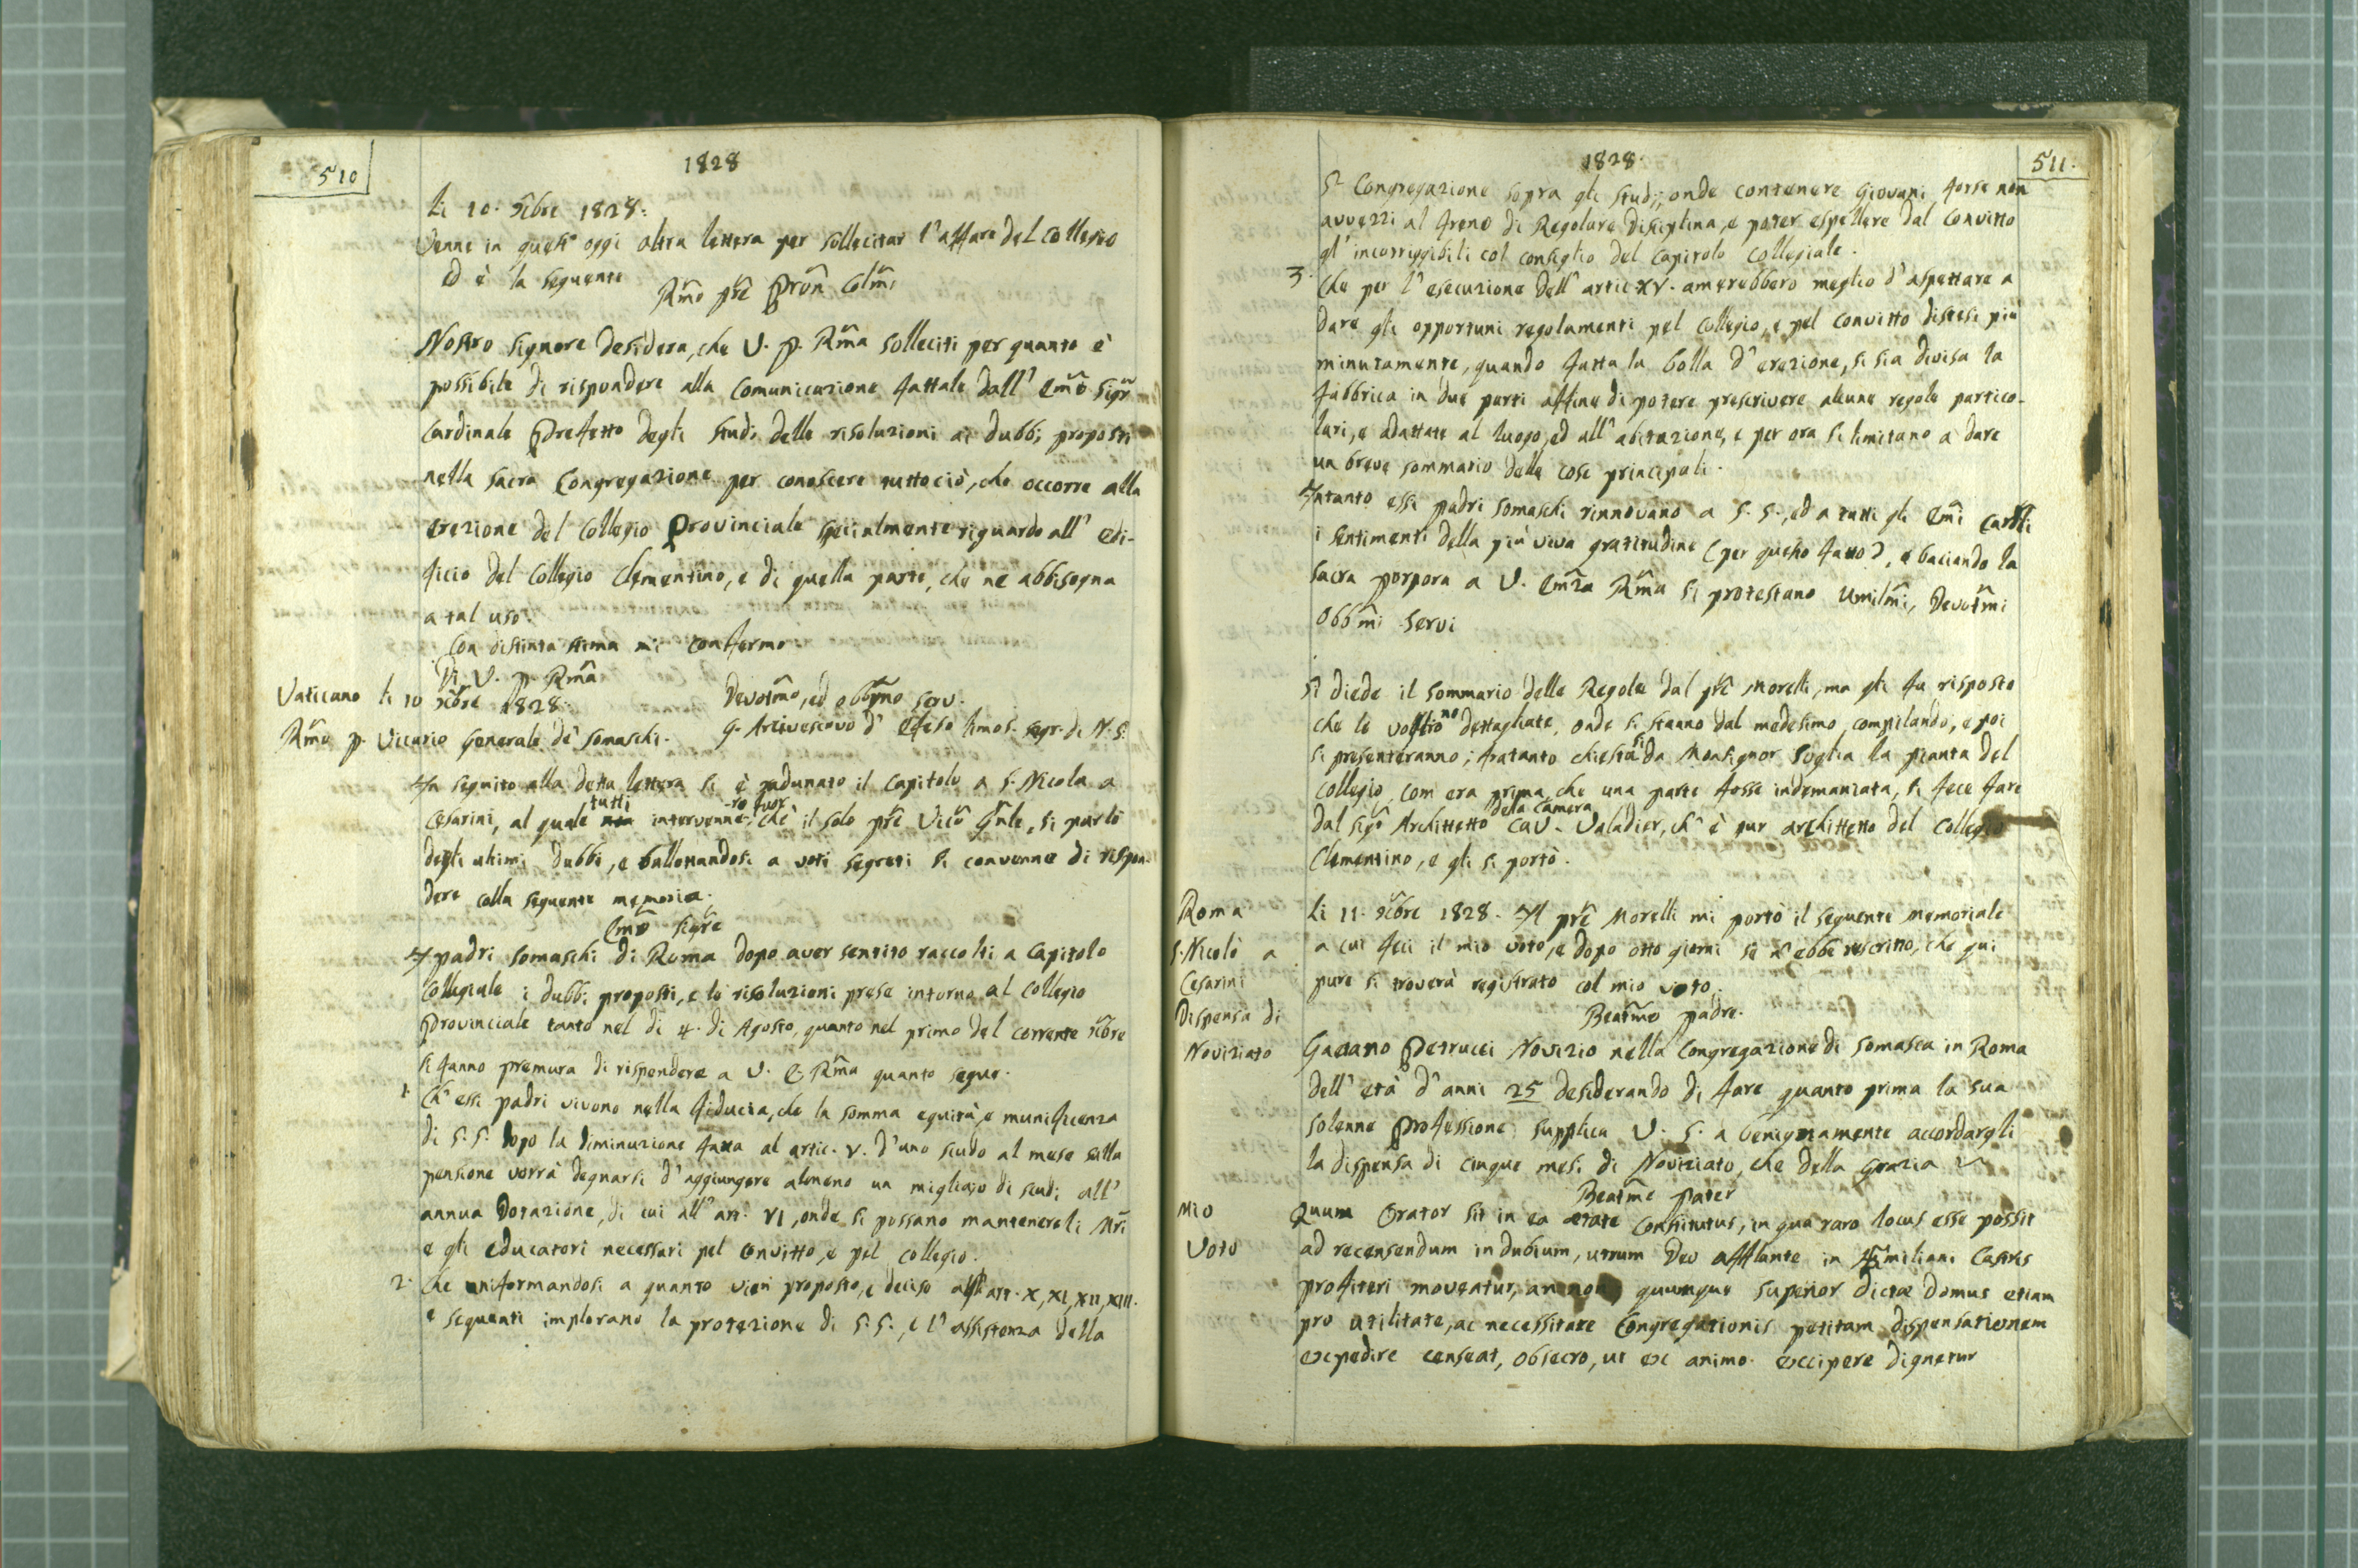 510
1828
Li 10. Xbre 1828.
Venne in quest' oggi altra lettera per sollecitar l'affare del Collegio
ed è la seguente
Rm̃o prẽ Prõn Colm̃i
Nostro Signore desidera, che V. P. Rm̃a solleciti per quanto è
possibile di rispondere alla comunicazione fattale dall' Em̃o Sigr̃
Cardinale Prefetto degli Studi delle risoluzioni ai dubbi proposti
nella sacra Congregazione per conoscere tuttociò, che occorre alla
erezione del Collegio Provinciale specialmente riguardo all' edi-
ficio del Collegio Clementino, e di quella parte, che ne abbisogna
a tal uso.
Con distinta stima mi confermo
Di V. P. Rm̃a
Vaticano li 10 Xbre 1828.
Devotm̃o, ed obbm̃o serv.
Rm̃o P. Vicario Generale de' Somaschi.
G. Arcivescovo d' Efeso limos. segr. di N. S.
In seguito alla detta lettera si è radunato il Capitolo a S. Nicola a
Cesarini, al quale tutti intervennero fuorchè il solo prẽ Vico Gñle, si parlò
degli ultimi dubbi, e ballottandosi a voti segreti si convenne di rispon-
dere colla seguente memoria.
Em̃o Sigr̃e
I padri Somaschi di Roma dopo aver sentito raccolti a Capitolo
Collegiale i dubbi proposti, e le risoluzioni prese intorno al Collegio
Provinciale tanto nel dì 4. di Agosto, quanto nel primo del corrente Xbre
si fanno premura di rispondere a V. E. Rm̃a quanto segue.
1. Ch' essi padri vivono nella fiducia, che la somma equità, e munificenza
di S. S. dopo la diminuzione fatta al artic. V. d'uno scudo al mese sulla
pensione vorrà degnarsi d'aggiungere almeno un migliajo di scudi all'
annua Dotazione, di cui all' art. VI, onde si possano mantenere li Mr̃i
e gli educatori necessari pel Convitto, e pel Collegio.
2. Che uniformandosi a quanto vien proposto, e deciso agli art. X, XI, XII, XIII.
e seguenti implorano la protezione di S. S., e l' assistenza della
1828.
511.
Sa. Congregazione sopra gli Studj, onde contenere Giovani forse non
avvezzi al freno di Regolare disciplina, e poter espellere dal Convitto
gl' incorriggibili col consiglio del Capitolo Collegiale.
3. Che per l' esecuzione dell' artic. XV. amerebbero meglio d'aspettare a
dare gli opportuni regolamenti pel Collegio, e pel Convitto distesi più
minutamente, quando fatta la bolla d' erezione, si sia divisa la
fabbrica in due parti affine di potere prescrivere alcune regole partico-
lari, e adattate al luogo, ed all' abitazione, e per ora si limitano a dare
un breve sommario delle cose principali.
Intanto essi padri Somaschi rinnovano a S. S., ed a tutti gli Em̃i Cardli
i sentimenti della più viva gratitudine (per questo fatto?), e baciando la
sacra porpora a V. Em̃za Rm̃a si protestano Umilm̃i, Devotm̃i
Obbm̃i Servi
Si diede il sommario delle Regole dal prẽ Morelli, ma gli fu risposto
che le vogliono dettagliate, onde si stanno dal medesimo compilando, e poi
si presenteranno; fratanto chiestasi da Monsignor Soglia la pianta del
Collegio, com era prima, che una parte fosse indemaniata, si fece fare
dal sigr̃ Architetto della Camera Cav. Valadier, ch' è pur architetto del Collegio
Clementino, e gli si portò.
Roma
S. Nicolò a
Cesarini
Dispensa di
Noviziato
Li 11. Xbre 1828. Il prẽ Morelli mi portò il seguente memoriale
a cui feci il mio voto, e dopo otto giorni se n' ebbe rescritto, che qui
pure si troverà registrato col mio voto.
Beatm̃o padre.
Gaetano Petrucci Novizio nella Congregazione di Somasca in Roma
dell' età d'anni 25 desiderando di fare quanto prima la sua
solenne Professione supplica V. S. a benignamente accordargli
la dispensa di cinque mesi di Noviziato, che della Grazia
Mio
Voto
Beatm̃e pater
Quum Orator sit in ea aetate constitutus, in qua raro locus esse possit
ad recensendum in dubium, utrum Deo afflante in Æmiliani Castris
profiteri moveatur, an non, quumque superior dictae domus etiam
pro utilitate, ac necessitate Congregationis petitam dispensationem
expedire censeat, obsecro, ut ex animo excipere dignetur